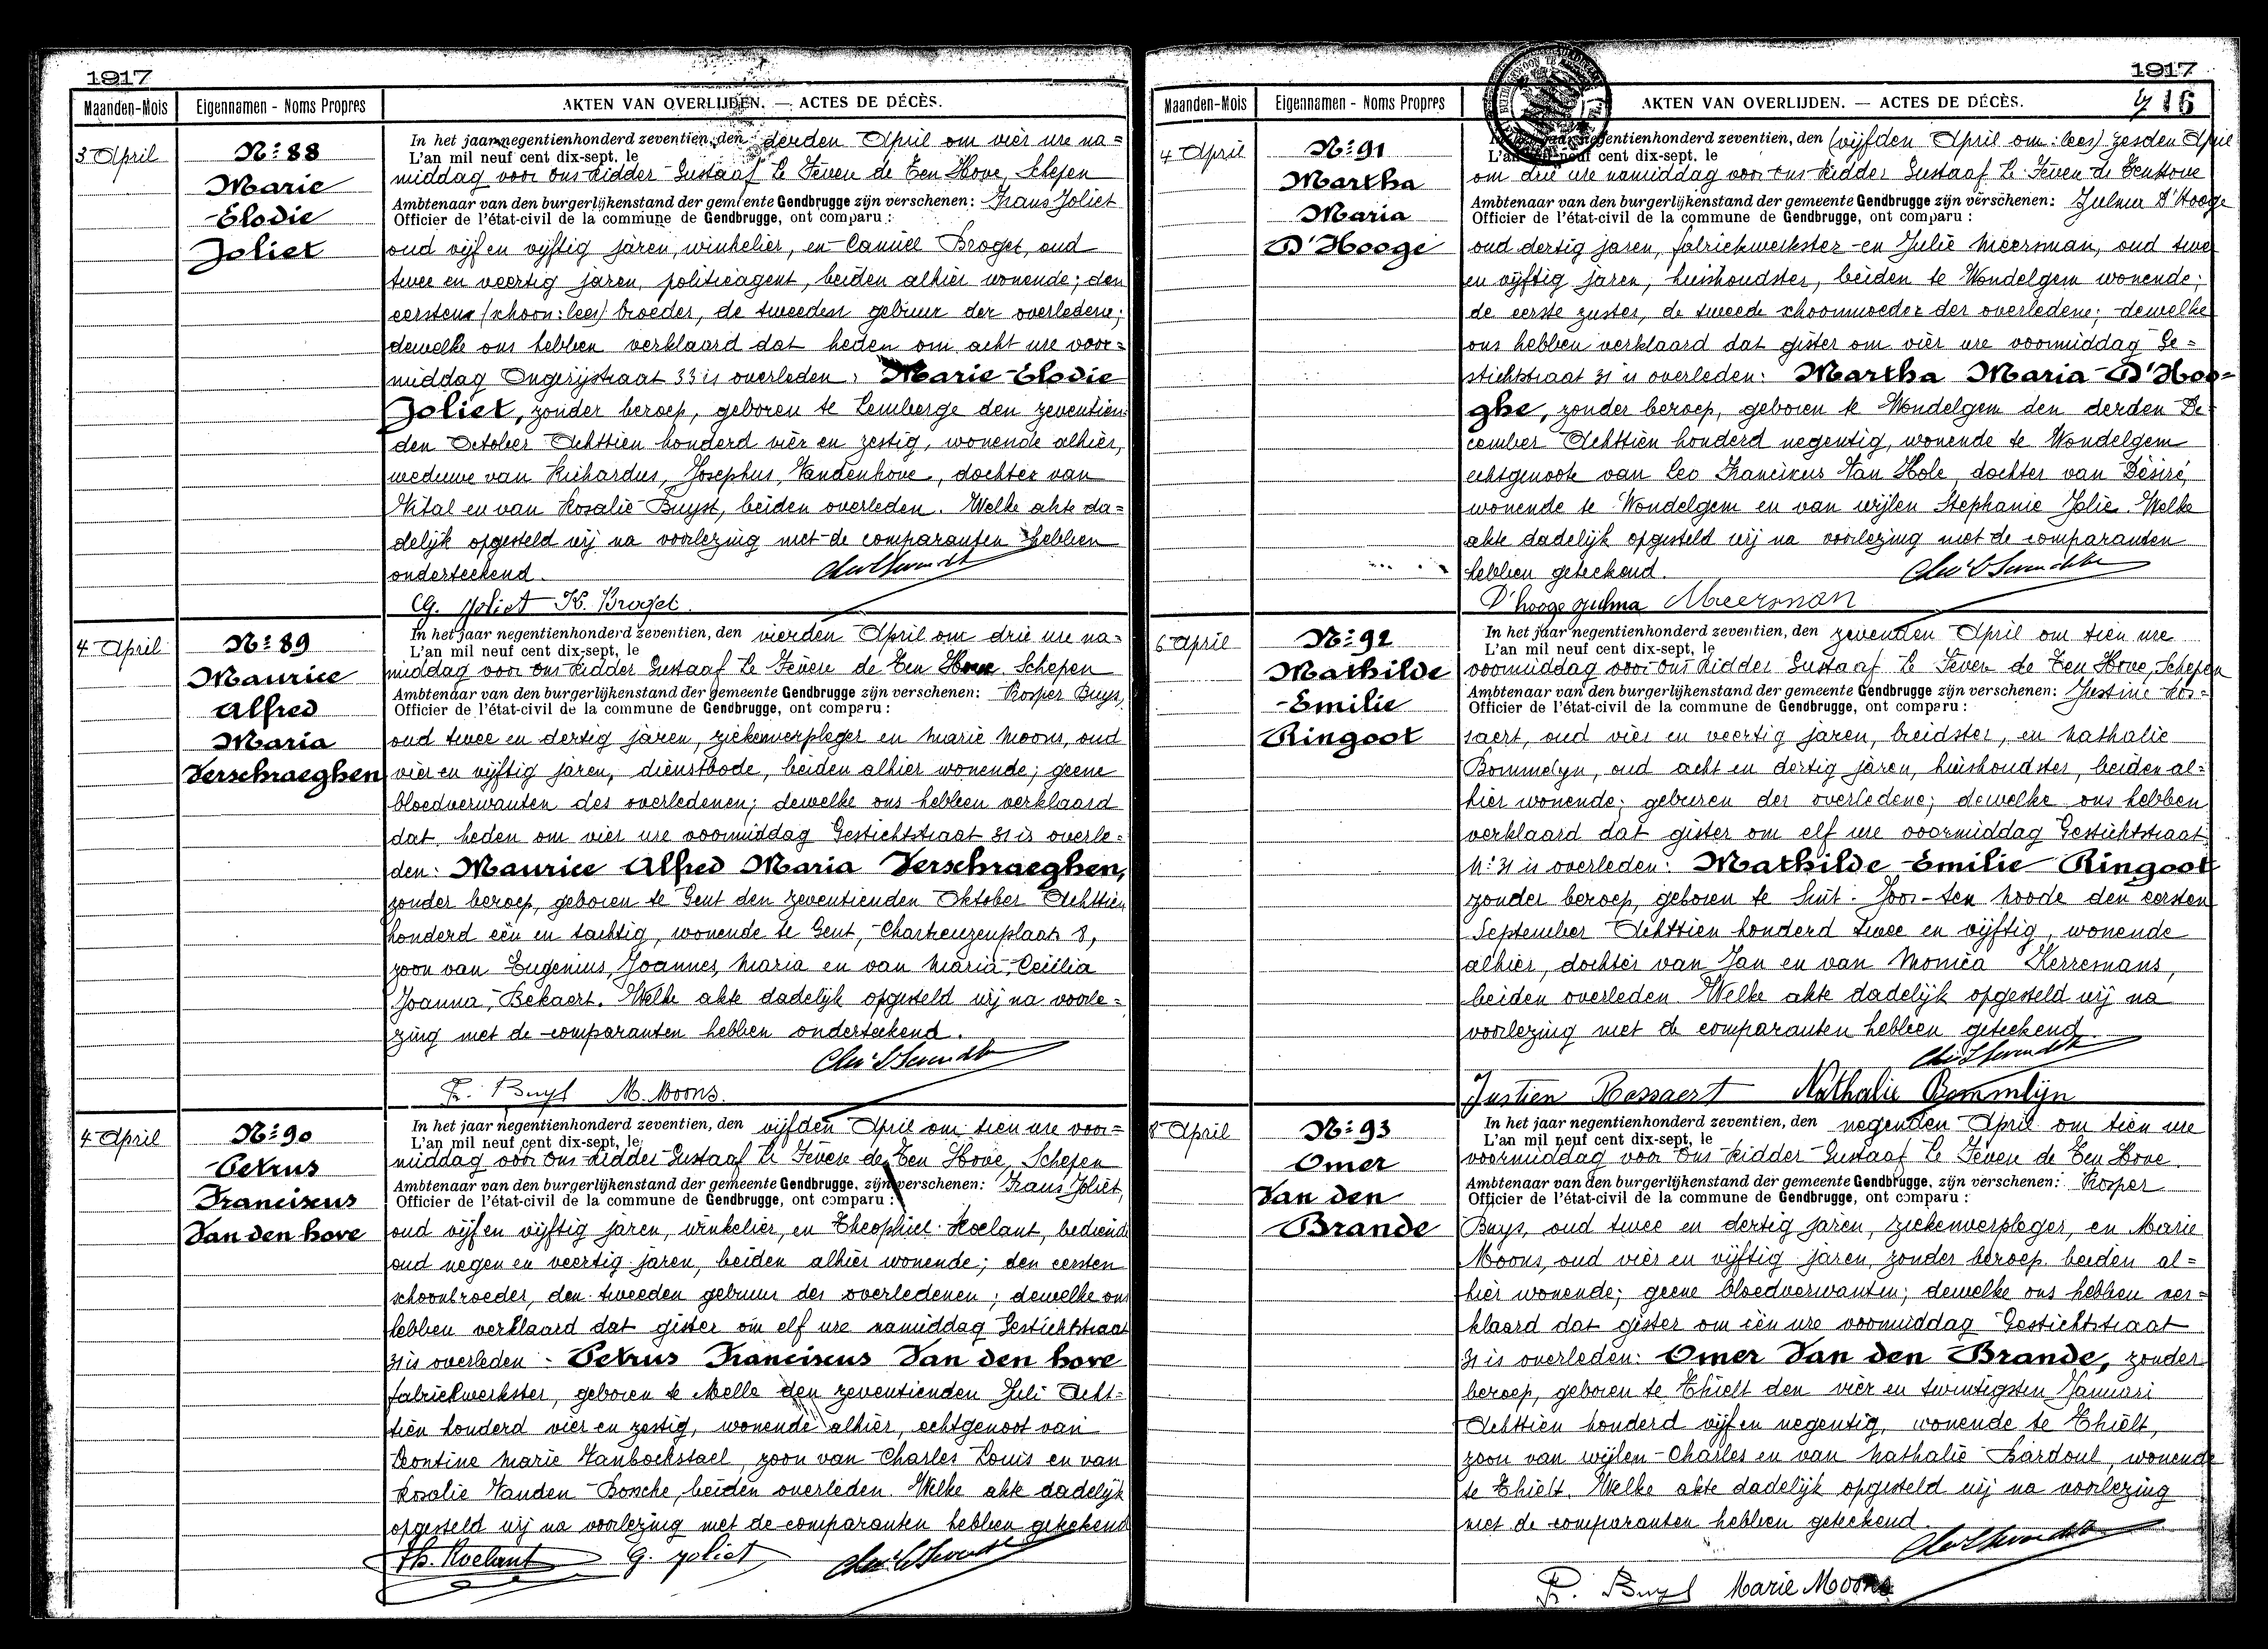 1917
Maanden-Mois Eigennamen - Noms Propres AKTEN VAN OVERLIJDEN. — ACTES DE DÉCÈS.
3 April
Nº 88
Marie
Elodie
Joliet
In het jaar negentienhonderd zeventien, den derden April om vier ure na=
L'an mil neuf cent dix-sept, le
middag voor ons Ridder Gustaaf Le Fèvere de Ten Hove, Schepen
Ambtenaar van den burgerlijkenstand der gemeente Gendbrugge zijn verschenen: Frans Joliet
Officier de l'état-civil de la commune de Gendbrugge, ont comparu :
oud vijf en vijftig jaren, winkelier, en Camiel Broget, oud
twee en veertig jaren, politieagent, beiden alhier wonende; den
eersten (schoon: lees) broeder, de tweeden gebuur der overledene;
dewelke ons hebben verklaard dat heden om acht ure voor=
middag Ongerijstraat 33 is overleden: Marie Elodie
Joliet, zonder beroep, geboren te Lemberge den zeventien=
den October Achttien honderd vier en zestig, wonende alhier,
weduwe van Richardus, Josephus, Vandenhove, dochter van
Vital en van Rosalie Buyst, beiden overleden. Welke akte da=
delijk opgesteld wij na voorlezing met de comparanten hebben
onderteekend.
G. Joliet K. Broget
4 April
Nº 89
Maurice
Alfred
Maria
Verschraeghen
In het jaar negentienhonderd zeventien, den vierden April om drie ure na=
L'an mil neuf cent dix-sept, le
middag voor ons Ridder Gustaaf Le Fèvere de Ten Hove Schepen
Ambtenaar van den burgerlijkenstand der gemeente Gendbrugge zijn verschenen: Prosper Buys,
Officier de l'état-civil de la commune de Gendbrugge, ont comparu :
oud twee en dertig jaren, ziekenverpleger en Marie Moons, oud
vier en vijftig jaren, dienstbode, beiden alhier wonende; geene
bloedverwanten des overledenen; dewelke ons hebben verklaard
dat heden om vier ure voormiddag Gestichtstraat 31 is overle=
den: Maurice Alfred Maria Verschraeghen,
zonder beroep, geboren te Gent den zeventienden Oktober Achttien
honderd één en tachtig, wonende te Gent, Chartreuzenplaats 8,
zoon van Eugenius, Joannes, Maria en van Maria, Cecilia
Joanna, Bekaert. Welke akte dadelijk opgesteld wij na voorle=
zing met de comparanten hebben onderteekend.
Pr. Buys M. Moons.
4 April
Nº 90
Petrus
Franciscus
Van den hove
In het jaar negentienhonderd zeventien, den vijfden April om tien ure voor=
L'an mil neuf cent dix-sept, le
middag voor ons Ridder Gustaaf Le Fèvere de Ten Hove, Schepen
Ambtenaar van den burgerlijkenstand der gemeente Gendbrugge, zijn verschenen: Frans Joliet,
Officier de l'état-civil de la commune de Gendbrugge, ont comparu :
oud vijf en vijftig jaren, winkelier, en Theophiel Roelant, bediende
oud negen en veertig jaren, beiden alhier wonende; den eersten
schoonbroeder, den tweeden gebuur des overledenen; dewelke ons
hebben verklaard dat gister om elf ure namiddag Gestichtstraat
31 is overleden: Petrus Franciscus Van den hove
fabriekwerkster, geboren te Melle den zeventienden Juli Acht=
tien honderd vier en zestig, wonende alhier, echtgenoot van
Leontine Marie Vanbockstael, zoon van Charles Louis en van
Rosalie Vanden Bosche, beiden overleden. Welke akte dadelijk
opgesteld wij na voorlezing met de comparanten hebben geteekend
Th. Roelant G. Joliet
1917
Maanden-Mois Eigennamen - Noms Propres AKTEN VAN OVERLIJDEN. — ACTES DE DÉCÈS. 16
4 April
Nº 91
Martha
Maria
D'Hooge
negentienhonderd zeventien, den (vijfden April om: lees) zesden April
L'an neuf cent dix-sept, le
om drie ure namiddag voor ons Ridder Gustaaf Le Fèvere de Tenhove
Ambtenaar van den burgerlijkenstand der gemeente Gendbrugge zijn verschenen: Zulma D'Hooge
Officier de l'état-civil de la commune de Gendbrugge, ont comparu :
oud dertig jaren, fabriekwerkster en Julie Meersman, oud twee
en vijftig jaren, huishoudster, beiden te Wondelgem wonende;
de eerste zuster, de tweede schoonmoeder der overledene; dewelke
ons hebben verklaard dat gister om vier ure voormiddag Ge=
stichtstraat 31 is overleden: Martha Maria D'Hoo=
ghe, zonder beroep, geboren te Wondelgem den derden De=
cember Achttien honderd negentig, wonende te Wondelgem
echtgenoote van Leo Franciscus Van Hole, dochter van Désiré,
wonende te Wondelgem en van wijlen Stephanie Jolie. Welke
akte dadelijk opgesteld wij na voorlezing met de comparanten
hebben geteekend.
D'hooge zulma Meersman
6 April
Nº 92
Mathilde
Emilie
Ringoot
In het jaar negentienhonderd zeventien, den zevenden April om tien ure
L'an mil neuf cent dix-sept, le
voormiddag voor ons Ridder Gustaaf Le Fèvere de Ten Hove, Schepen
Ambtenaar van den burgerlijkenstand der gemeente Gendbrugge zijn verschenen: Justine Ros=
Officier de l'état-civil de la commune de Gendbrugge, ont comparu :
saert, oud vier en veertig jaren, breidster, en Nathalie
Bommelyn, oud acht en dertig jaren, huishoudster, beiden al=
hier wonende; geburen der overledene; dewelke ons hebben
verklaard dat gister om elf ure voormiddag Gestichtstraat
Nº 31 is overleden: Mathilde Emilie Ringoot
zonder beroep, geboren te Sint-Joos-ten Noode den eersten
September Achttien honderd twee en vijftig, wonende
alhier, dochter van Jan en van Monica Herremans,
beiden overleden. Welke akte dadelijk opgesteld wij na
voorlezing met de comparanten hebben geteekend.
Justien Rossaert Nathalie Bommlijn
8 April
Nº 93
Omer
Van den
Brande
In het jaar negentienhonderd zeventien, den negenden April om tien ure
L'an mil neuf cent dix-sept, le
voormiddag voor ons Ridder Gustaaf Le Fèvere de Ten Hove.
Ambtenaar van den burgerlijkenstand der gemeente Gendbrugge, zijn verschenen: Prosper
Officier de l'état-civil de la commune de Gendbrugge, ont comparu :
Buys, oud twee en dertig jaren, ziekenverpleger, en Marie
Moons, oud vier en vijftig jaren, zonder beroep, beiden al=
hier wonende; geene bloedverwanten; dewelke ons hebben ver=
klaard dat gister om één ure voormiddag Gestichtstraat
31 is overleden: Omer Van den Brande, zonder
beroep, geboren te Thielt den vier en twintigsten Januari
Achttien honderd vijf en negentig, wonende te Thielt,
zoon van wijlen Charles en van Nathalie Bardoul, wonende
te Thielt. Welke akte dadelijk opgesteld wij na voorlezing
met de comparanten hebben geteekend.
Pr. Buys Marie Moons